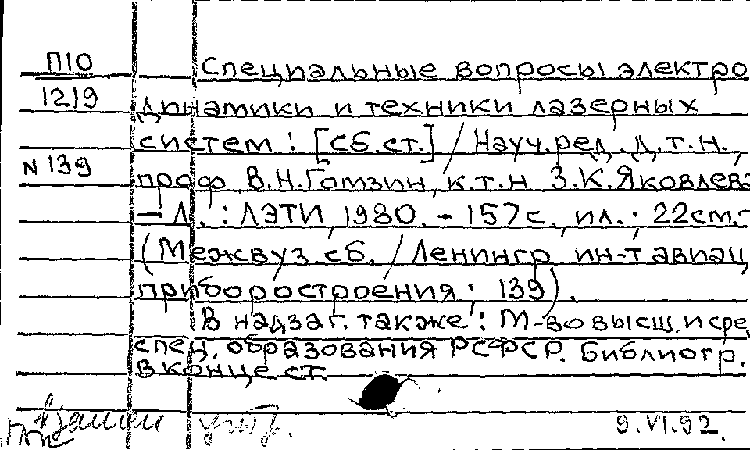 П10
Специальные вопросы электро
1219
динамики и техники лазерных
систем : [сб. ст.] / Науч. ред. д. т. н.,
N 139
проф. В. Н. Гомзин, к. т. н. З. К. Яковлева
- Л. : ЛЭТИ, 1980. - 157 с., ил. ; 22 см. -
(Межвуз. сб. / Ленингр. ин-т авиац.
приборостроения ; 139).
В надзаг. также : М-во высш. и сре
спец. образования РСФСР. Библиогр.
в конце ст.
9.VI.92.